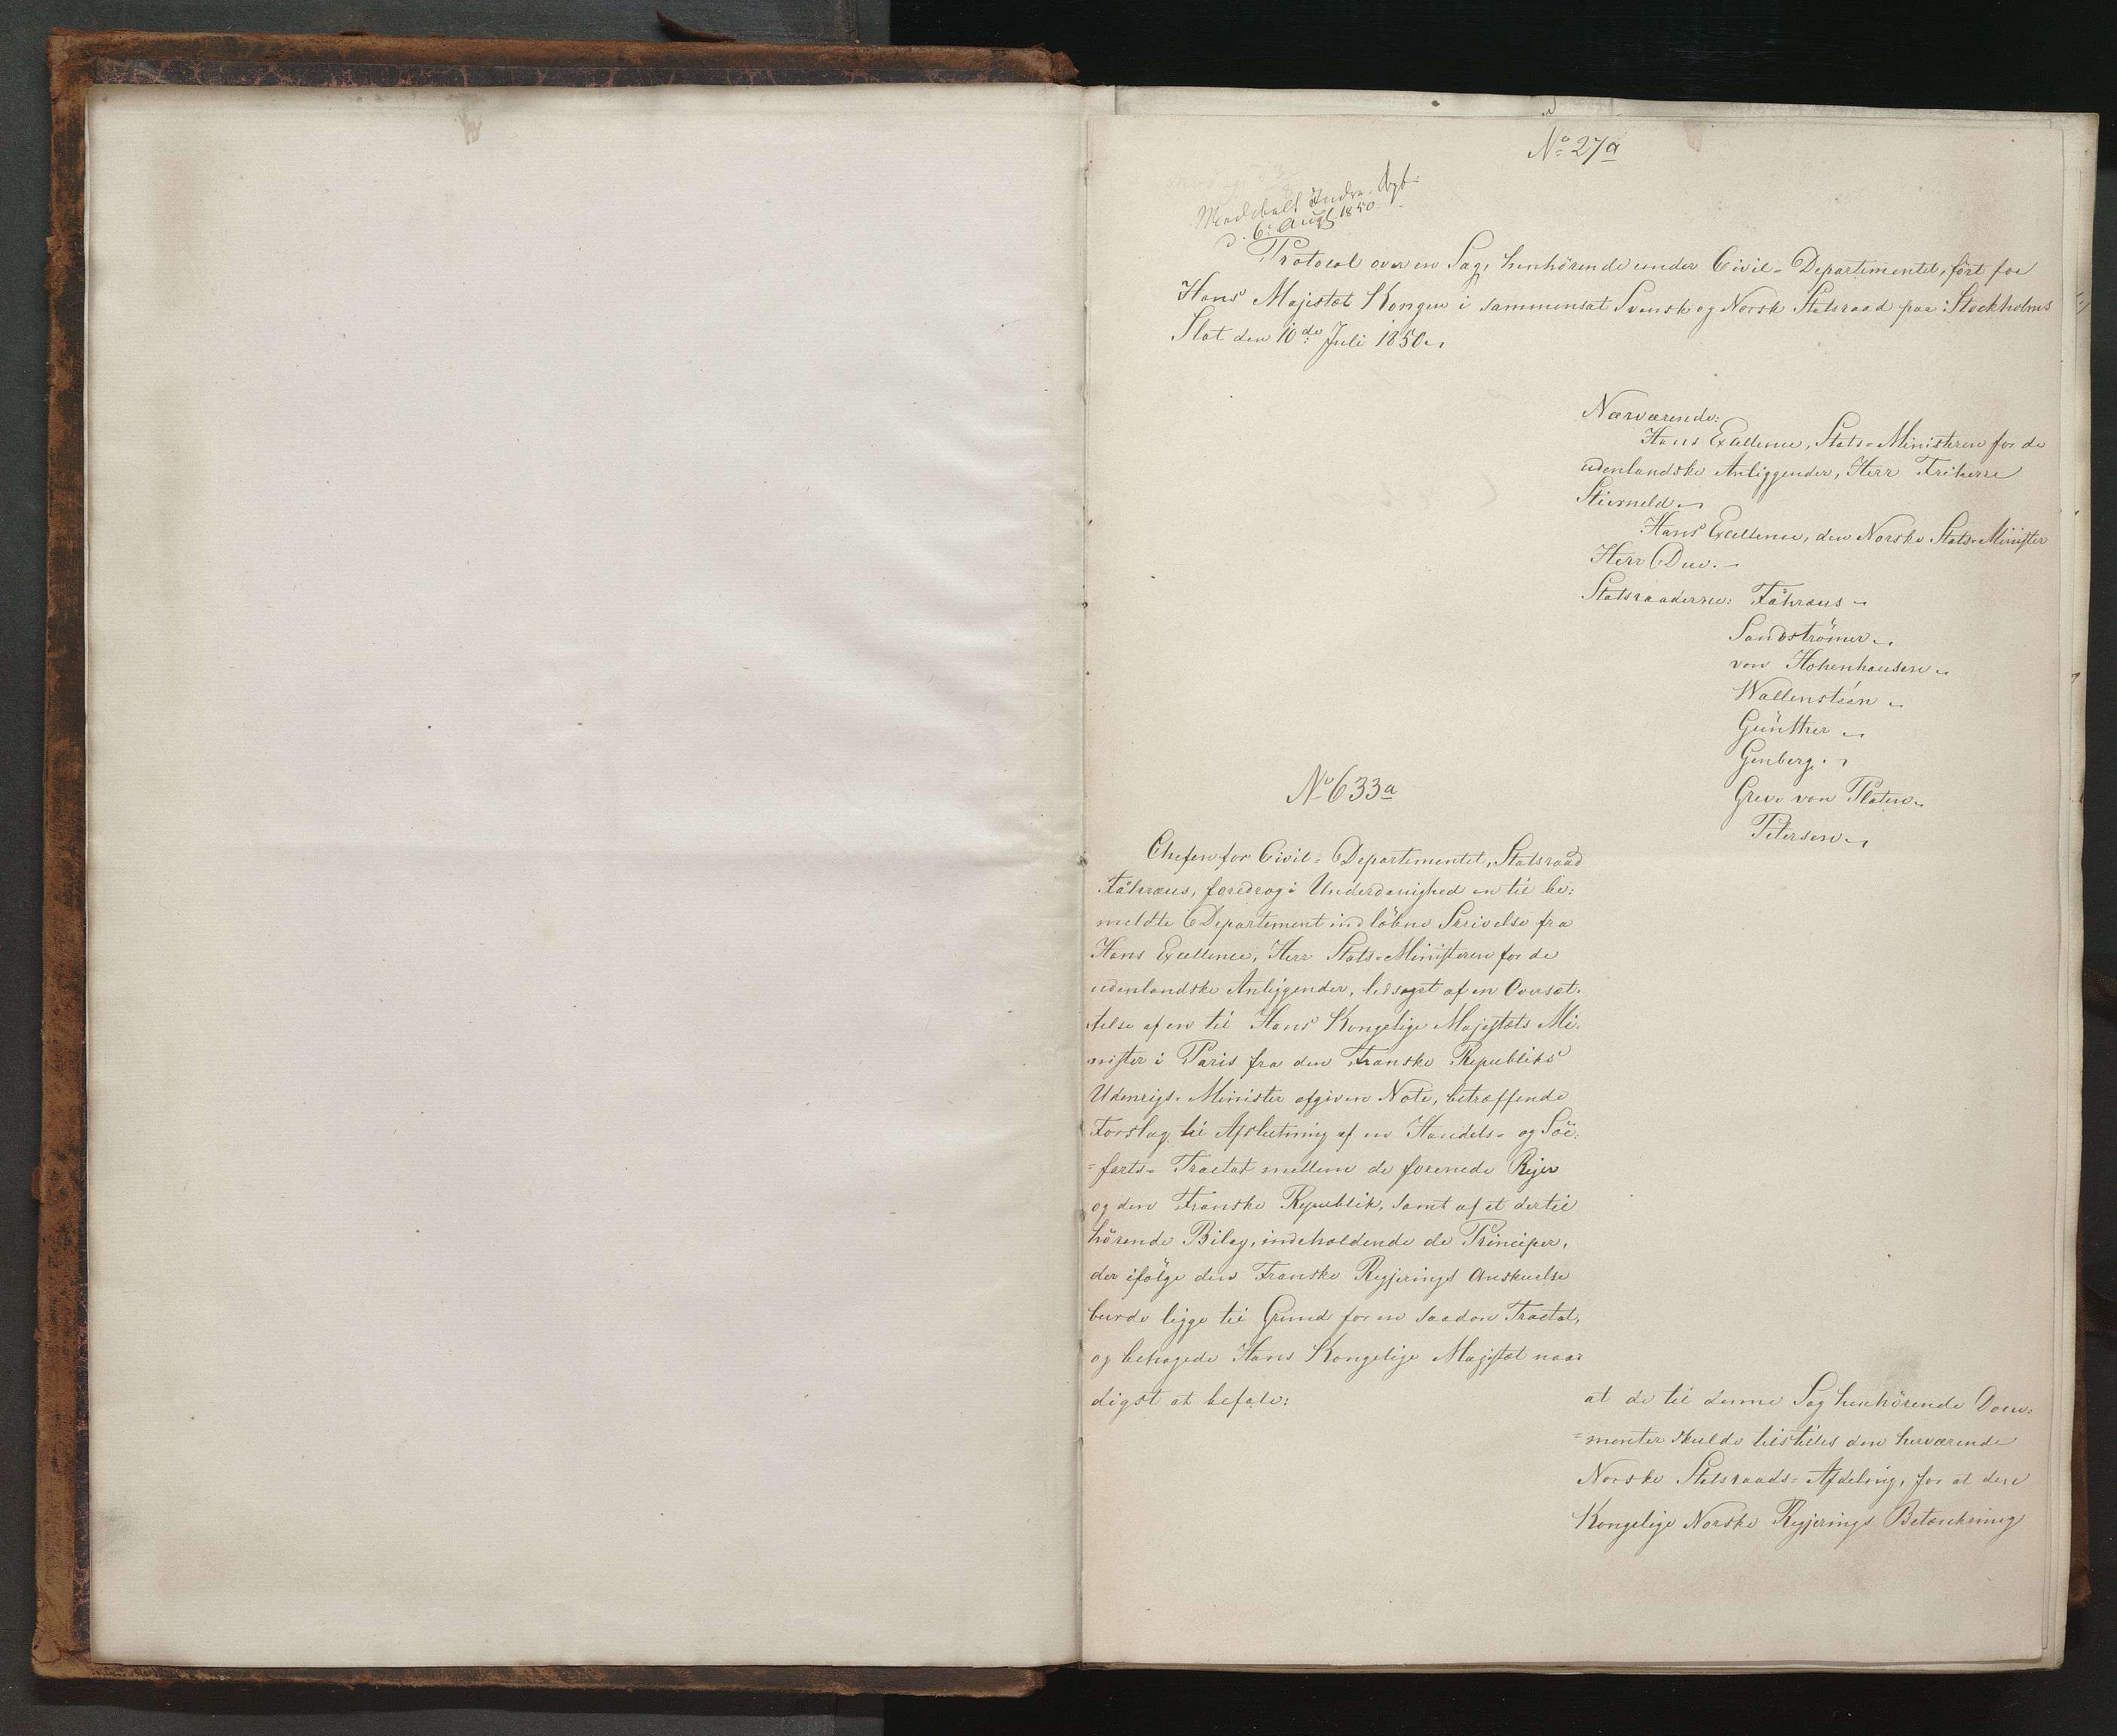 No 27a
Meddelt Indre Dpt.
d. 6. Augt. 1850.
Protocol over en Sag, henhörende under Civil-Departementet, fört for
Hans Majestæt Kongen i sammensat Svensk og Norsk Statsraad paa Stockholms
Slot den 10de Juli 1850.
Nærværende:
Hans Excellence, Stats-Ministeren for de
udenlandske Anliggender, Herr Friherre
Stierneld.
Hans Excellence, den Norske Stats-Minister
Herr Due.
Statsraaderne: Fåhræus
Sandströmer.
von Hohenhausen.
Wallensteén.
Günther.
Genberg.
Greve von Platen.
Petersen.
No 633a
Chefen for Civil-Departementet, Statsraad
Fåhræus, foredrog i Underdanighed en til be:
meldte Departement indløbne Skrivelse fra
Hans Excellence, Herr Stats-Ministeren for de
udenlandske Anliggender, ledsaget af en Oversæt-
telse af en til Hans Kongelige Majestæts Mi-
nister i Paris fra den Franske Republiks
Udenrigs-Minister afgiven Note, betræffende
Forslag til Afslutning af en Handels- og Söe:
=farts-Tractat mellem de forenede Riger
og den Franske Republik, samt af et dertil
hörende Bilag, indeholdende de Principer,
der ifölge den Franske Regjerings Anskuelse
burde ligge til Grund for en saadan Tractat,
og behagede Hans Kongelige Majestæt naa-
digst at befale:
at de til denne Sag henhörende Docu:
=menter skulde tilstilles den herværende
Norske Statsraads-Afdeling, for at den
Kongelige Norske Regjerings Betænkning